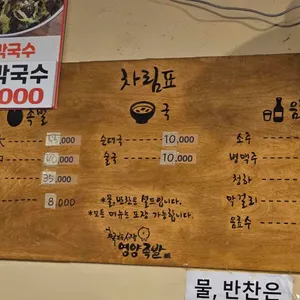 막국수
막국수
,000
차림표
족발
35,000
8,000
국
순대국 10,000
술국 10,000
*물, 반찬은 셀프입니다.
*모든 메뉴는 포장 가능합니다.
영양족발
음
소주
병맥주
청하
막걸리
음료수
물, 반찬은